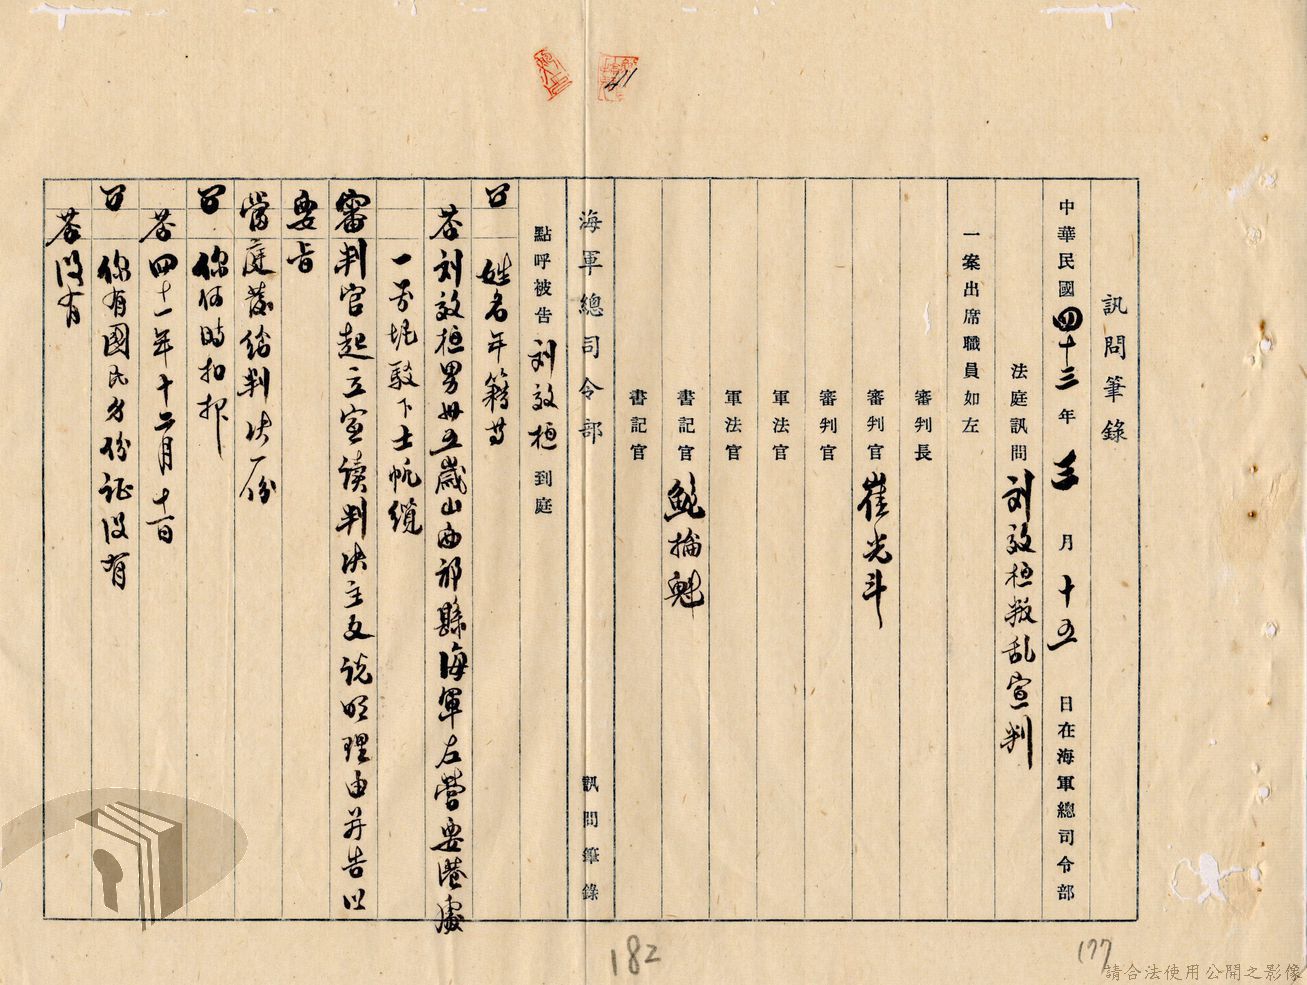 訊問筆錄
中華民國四十三年三月十五日在海軍總司令部
法庭訊問刘效桓叛乱宣判
一案出席職員如左
審判長
審判官崔光斗
審判官
軍法官
軍法官
書記官鮑掄魁
書記官
海軍總司令部 訊問筆錄
點呼被告刘效桓到庭
問 姓名年籍等
答 刘效桓男卅五歲山西祁縣海軍左營要港處
一号坭駁下士帆纜
審判官起立宣讀判決主文說明理由并告以
要旨
當庭發給判決一份
問 你何時扣押
答 四十一年十二月十一日
問 你有國民身份证沒有
答 沒有
182
177
請合法使用公開之影像